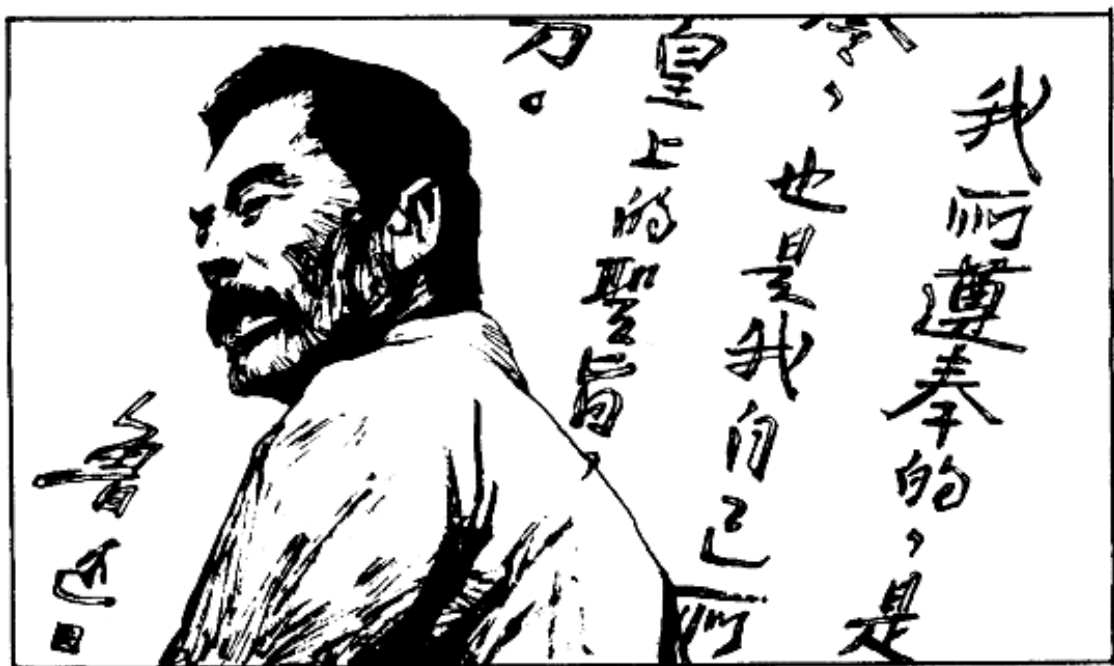 我所遵奉的，是
令，也是我自己所
皇上的聖旨，
刀。
魯迅